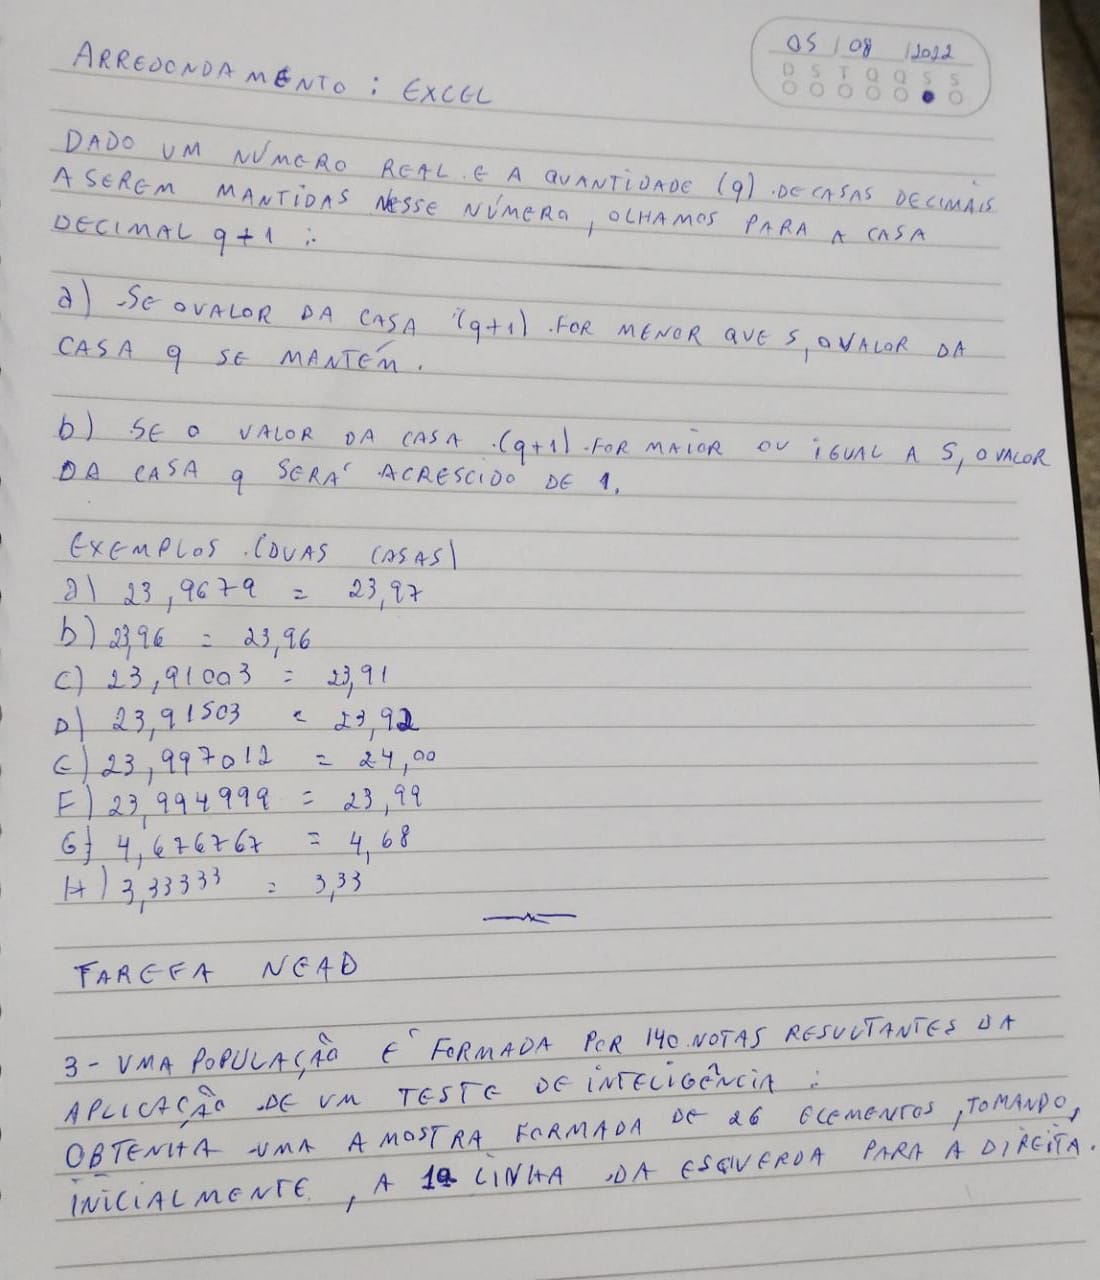 05 / 08 / 2022
D S T Q Q S S
ARREDONDAMENTO : EXCEL
DADO UM NÚMERO REAL E A QUANTIDADE (q) DE CASAS DECIMAIS
A SEREM MANTIDAS NESSE NÚMERO, OLHAMOS PARA A CASA
DECIMAL q+1 :
a) SE O VALOR DA CASA (q+1) FOR MENOR QUE 5, O VALOR DA
CASA q SE MANTÉM.
b) SE O VALOR DA CASA (q+1) FOR MAIOR OU IGUAL A 5, O VALOR
DA CASA q SERÁ ACRESCIDO DE 1.
EXEMPLOS (DUAS CASAS)
a) 23,9679 = 23,97
b) 23,96 = 23,96
C) 23,91003 = 23,91
D) 23,91503 = 23,92
E) 23,997012 = 24,00
F) 23,994999 = 23,99
G) 4,676767 = 4,68
H) 3,33333 = 3,33
TAREFA NEAD
3 - UMA POPULAÇÃO É FORMADA POR 140 NOTAS RESULTANTES DA
APLICAÇÃO DE UM TESTE DE INTELIGÊNCIA :
OBTENHA UMA AMOSTRA FORMADA DE 26 ELEMENTOS, TOMANDO,
INICIALMENTE, A 1ª LINHA DA ESQUERDA PARA A DIREITA.